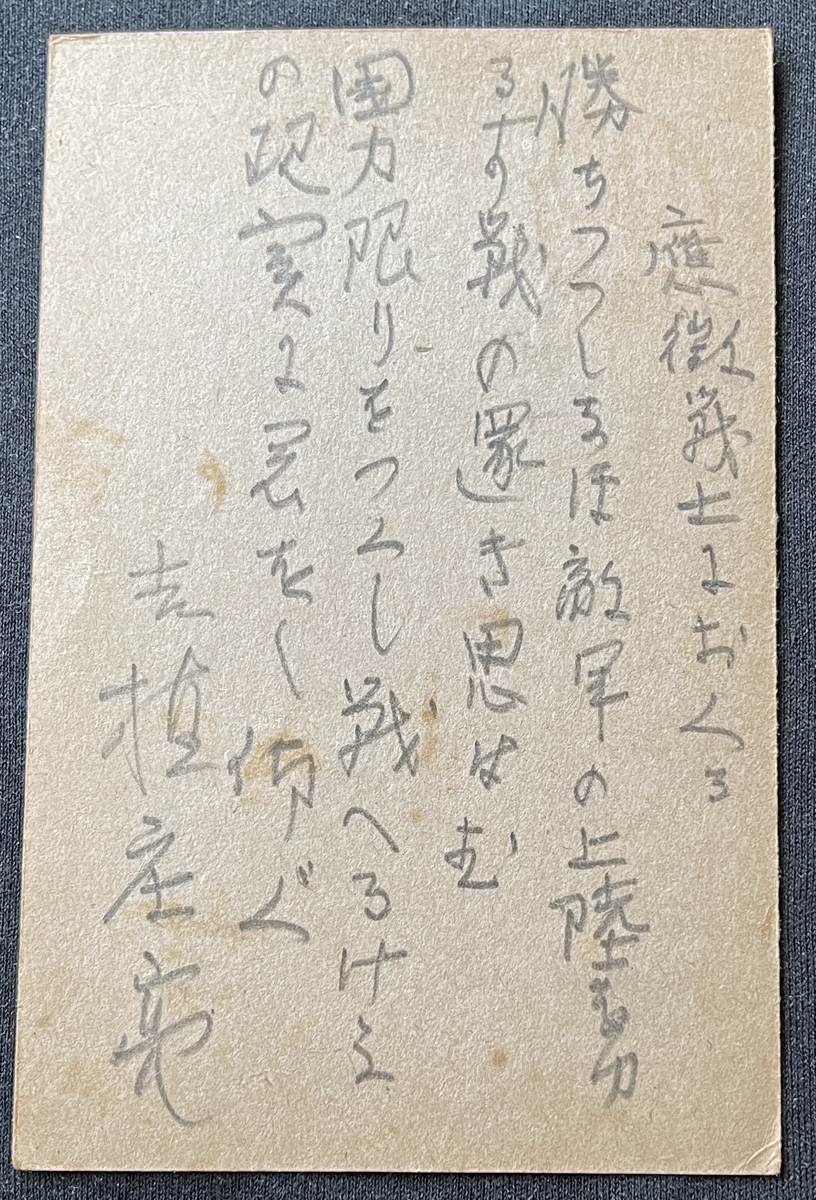 應徴戦士におくる
勝ちつつしなほ敵軍の上陸をゆ
るすの戦の還き思はむ
國力限りをつくし戦へるけふ
の現實に君をし仰ぐ
吉植庄亮